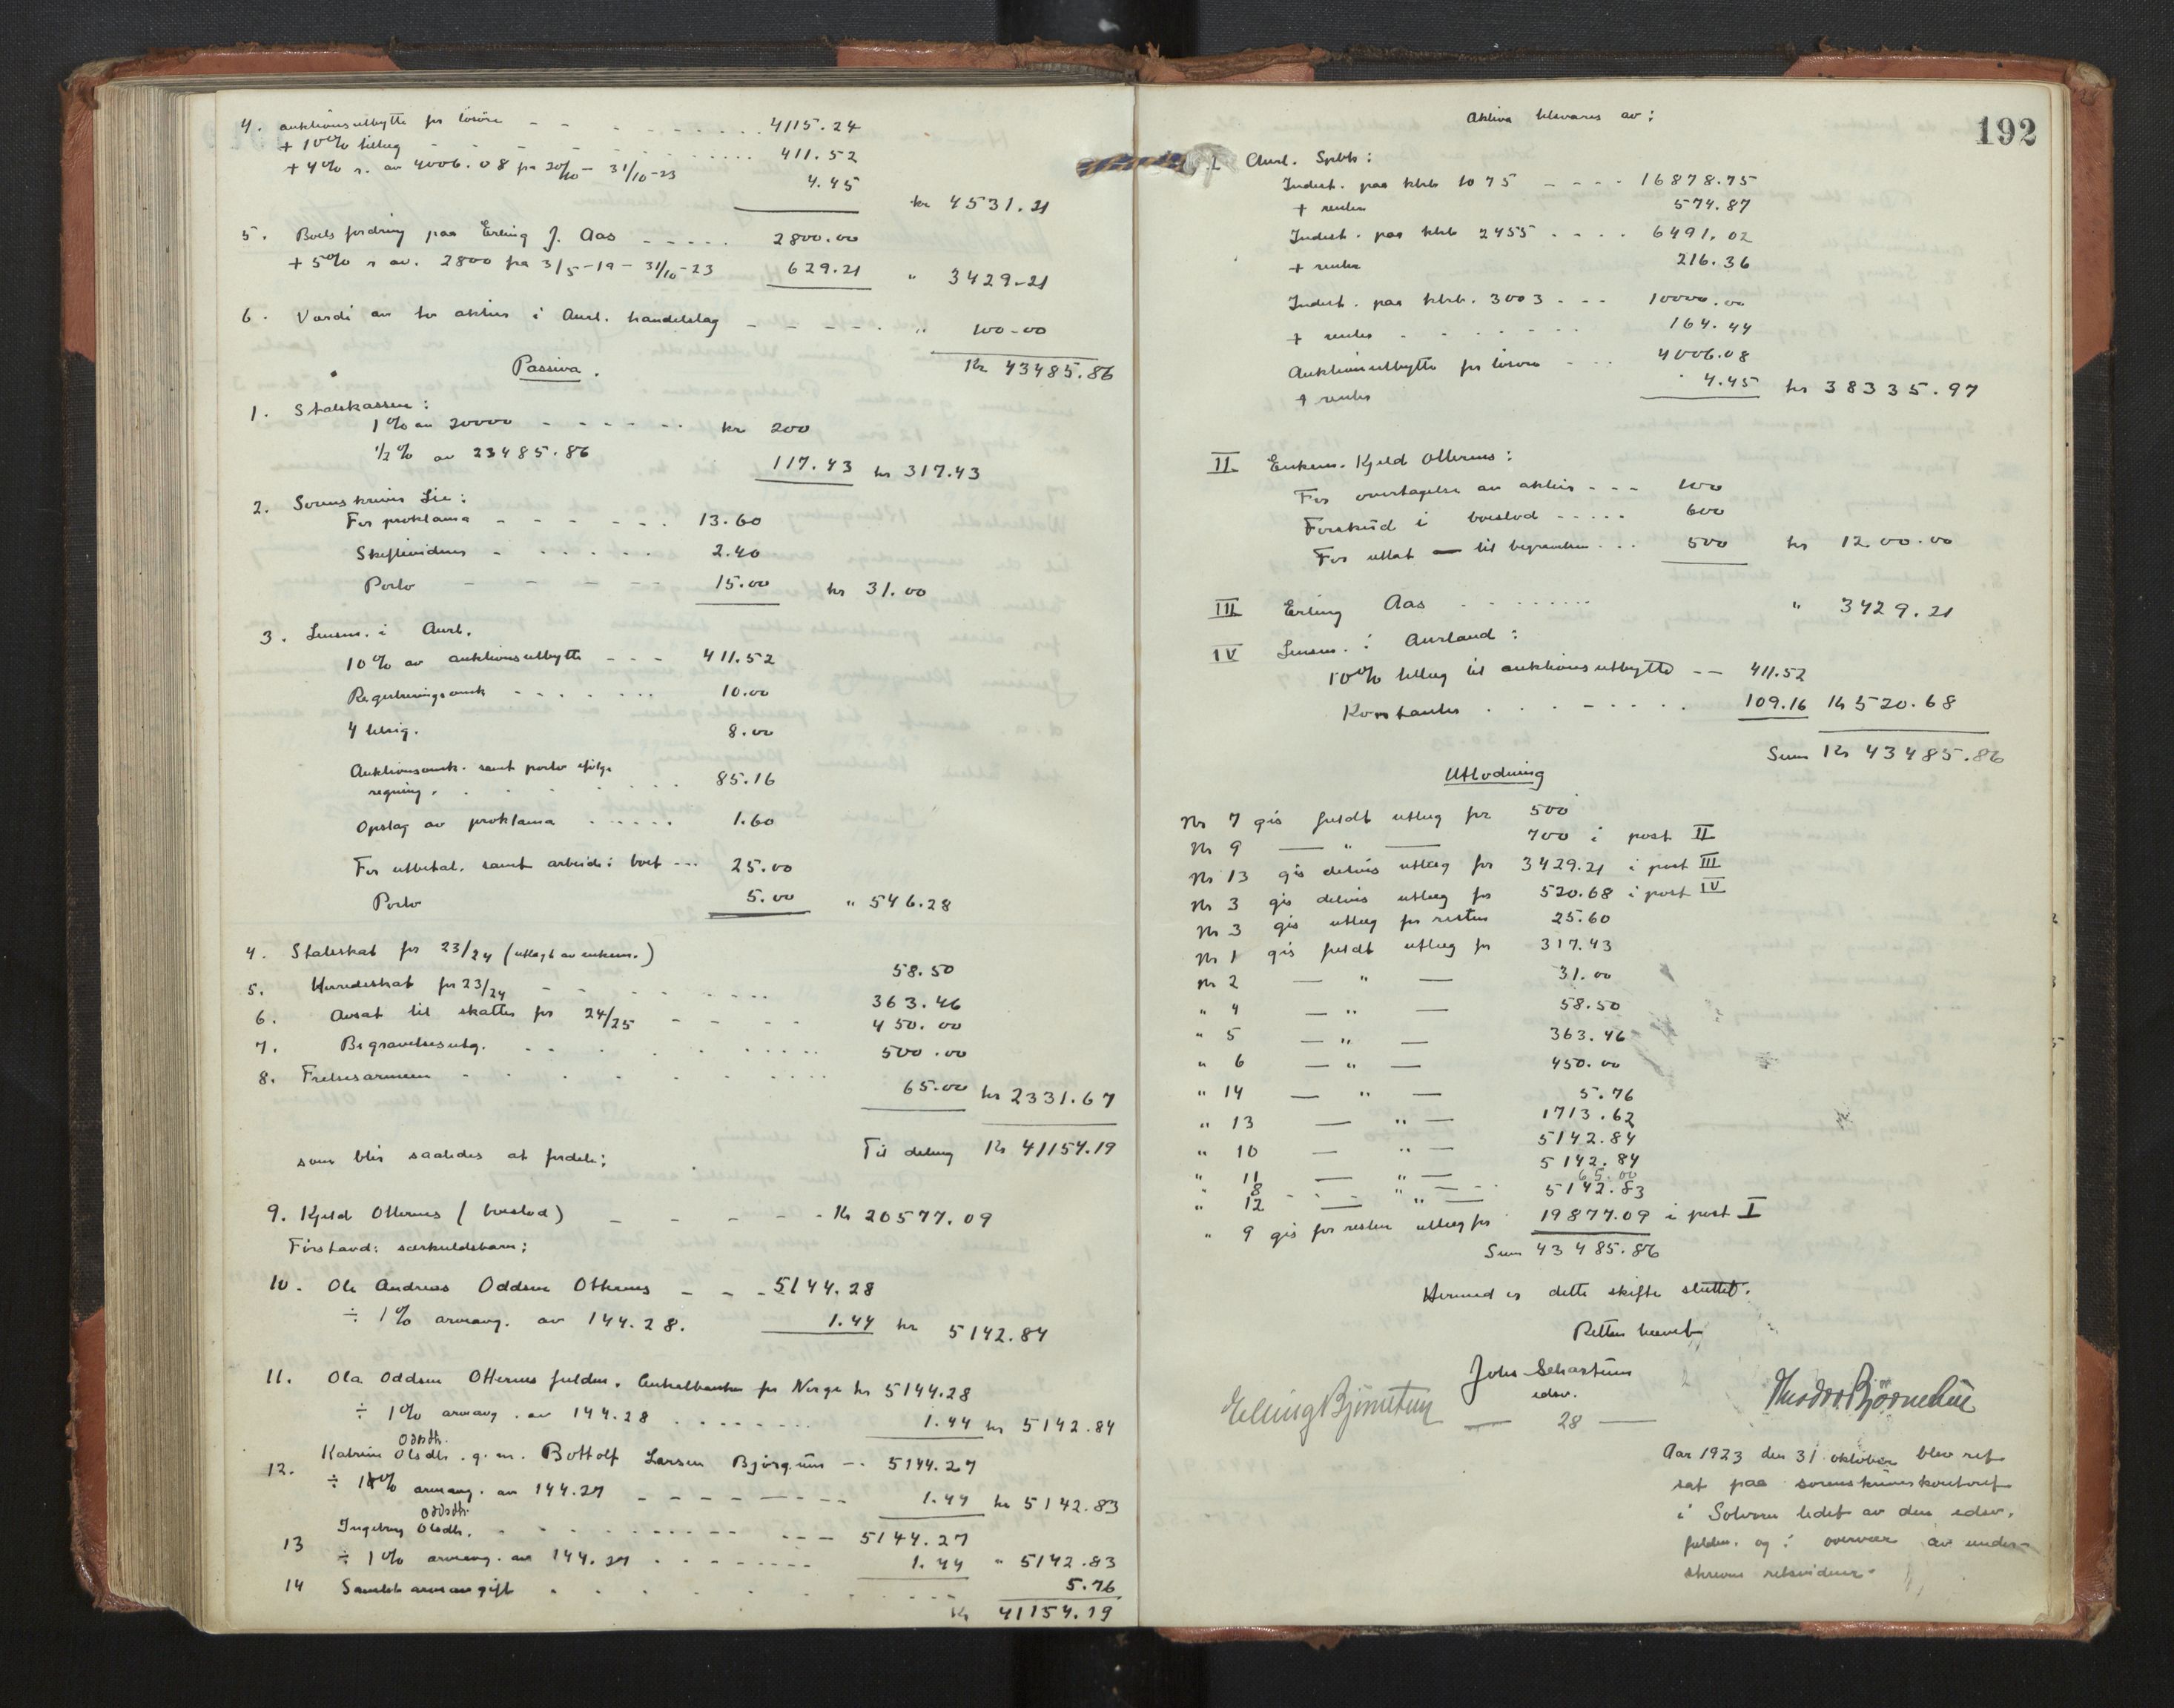 4. auktionsutbytte for løsøre - - - - - - - 4115.24
+ 10% tillæg - - - - - - - 411.52
+ 4% r. av 4006.08 fra 20/10 - 31/10-23 4.45
kr 4531.21
5. Boets fordring paa Erling J. Aas - - - - - 2800.00
+ 5% r av. 2800 fra 3/5-19 - 31/10-23 629.21 " 3429-21
6. Værdi av to aktier i Aurl. handelslag - - - - - " 100-00
Kr 43485.86
Passiva.
1. Statskassen:
1% av 20000 - - - - - - kr 200
1/2% av 23485.86 117.43 kr 317.43
2. Sorenskriver Lie:
For proklama - - - - - - 13.60
Skiftevidner - - - - - 2.40
Porto - - - - - 15.00 kr 31.00
3. Lensm. i Aurl.
10% av auktionsutbytte - - - 411.52
Registreringsomk - - - - - - 10.00
4 tilsig. 8.00
Auktionsomk. samt porto ifølge
regning. - - - - - - 85.16
Opslag av proklama - - - - - 1.60
For utbetal. samt arbeide i boet - - - 25.00
Porto 5.00 " 546.28
4. Statsskat for 23/24 (utlagt av enkem.) 58.50
5. Herredsskat for 23/24 - - - - - - 363.46
6. Avsat til skatter for 24/25 - - - - 450.00
7. Begravelsesutg. - - - - - - 500.00
8. Frelsesarmeen - - - - - - 65.00 kr 2331.67
Til deling Kr 41154.19
som blir saaledes at fordele:
9. Kjeld Otternes (boeslod) - - - - - Kr 20577.09
Førstavd: særkuldsbarn:
10. Ole Andreas Oddsen Otternes - - - 5144.28
÷ 1% arveavg. av 144.28. 1.44 kr 5142.84
11. Ola Oddsen Otternes fuldm. Centralbanken for Norge kr 5144.28
÷ 1% arveavg. av 144.28 - - - - - - 1.44 kr 5142.84
Oddsdtr.
12. Katrine Olsdtr. g. m. Bottolf Larsen Bjørgum - - 5144.27
÷ 1% arveavg. av 144.27 - - - - - - - 1.44 kr 5142.83
Oddsdtr.
13 Ingeborg Olsdtr. - - - - - - - - 5144.27
÷ 1% arveavg. av 144.27 - - - - - - 1.44 " 5142.83
14 Samlet arveavgift - - - - - - 5.76
Kr 41154.19
192
Aktiva tilsvares av:
I. Aurl. Spbk:
Indest. paa ktrb 1075 - - - - 16878.75
+ renter 574.87
Indest. paa ktrb 2455 - - - - 6491.02
+ renter 216.36
Indest. paa ktrb. 3003 - - - 10000.00
+ renter - - - - - - 164.44
Auktionsutbytte for løsøre - - - 4006.08
+ renter 4.45 kr 38335.97
II Enkem. Kjeld Otternes:
For overtagelse av aktier - - - 100
Forskud i boeslod - - - - - 600
For uttat til begravelsen - - - 500 kr 1200.00
III Erling Aas - - - - - - " 3429.21
IV Lensm. i Aurland:
10% tillæg til auktionsutbytte - - 411.52
Kontanter - - - - - - 109.16 Kr 520.68
Sum Kr 43485.86
Utlodning
Nr 7 gis fuldt utlæg for 500
Nr 9 — " — 700 i post II
Nr 13 gis delvis utlæg for 3429.21 i post III
Nr 3 gis delvis utlæg for 520.68 i post IV
Nr 3 gis utlæg for resten 25.60
Nr 1 gis fuldt utlæg for 317.43
Nr 2 — " — 31.00
" 4 — " — 58.50
" 5 — " — 363.46
" 6 — " — 450.00
" 14 — " — 5.76
" 13 — " — 1713.62
" 10 — " — 5142.84
" 11 — " — 5142.84
" 8 - - — " - - - 65.00
" 12 — " — 5142.83
" 9 gis for resten utlæg for 19877.09 i post I
Sum 43485.86
Hermed er dette skifte sluttet.
Retten hævet
Johs Sehartum
edsv.
— 28 —
Theodor Bjørnetun
Aar 1923 den 31 oktober blev ret
sat paa sorenskriverkontoret
i Solvorn ledet av den edsv.
fuldm. og i overvær av under-
skrevne retsvidner.